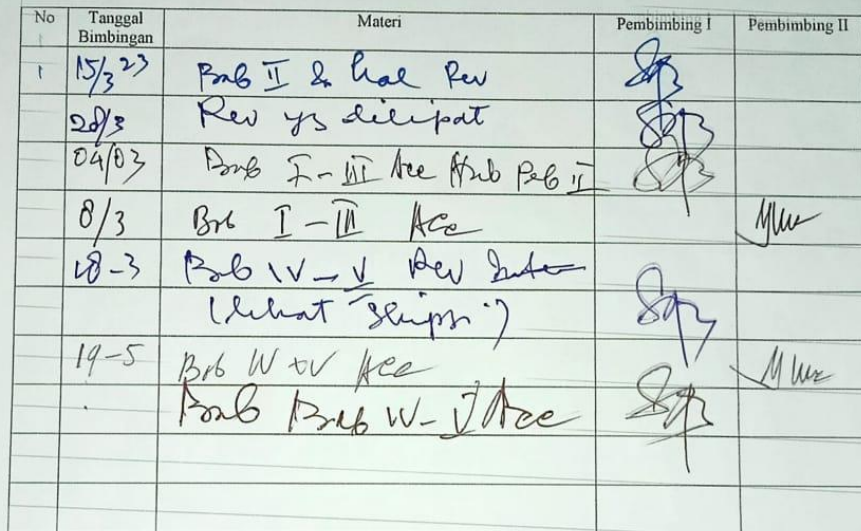 No Tanggal Bimbingan Materi Pembimbing I Pembimbing II
1 15/3 23 Bab II & hal Rev
28/3 Rev yg dilipat
04/03 Bab I - III Acc Hub Peb II
8/3 Bab I - III Acc
18-3 Bab IV - V Rev
(lihat Skripsi)
19-5 Bab IV + V Acc
Bab Bab IV - V Acc